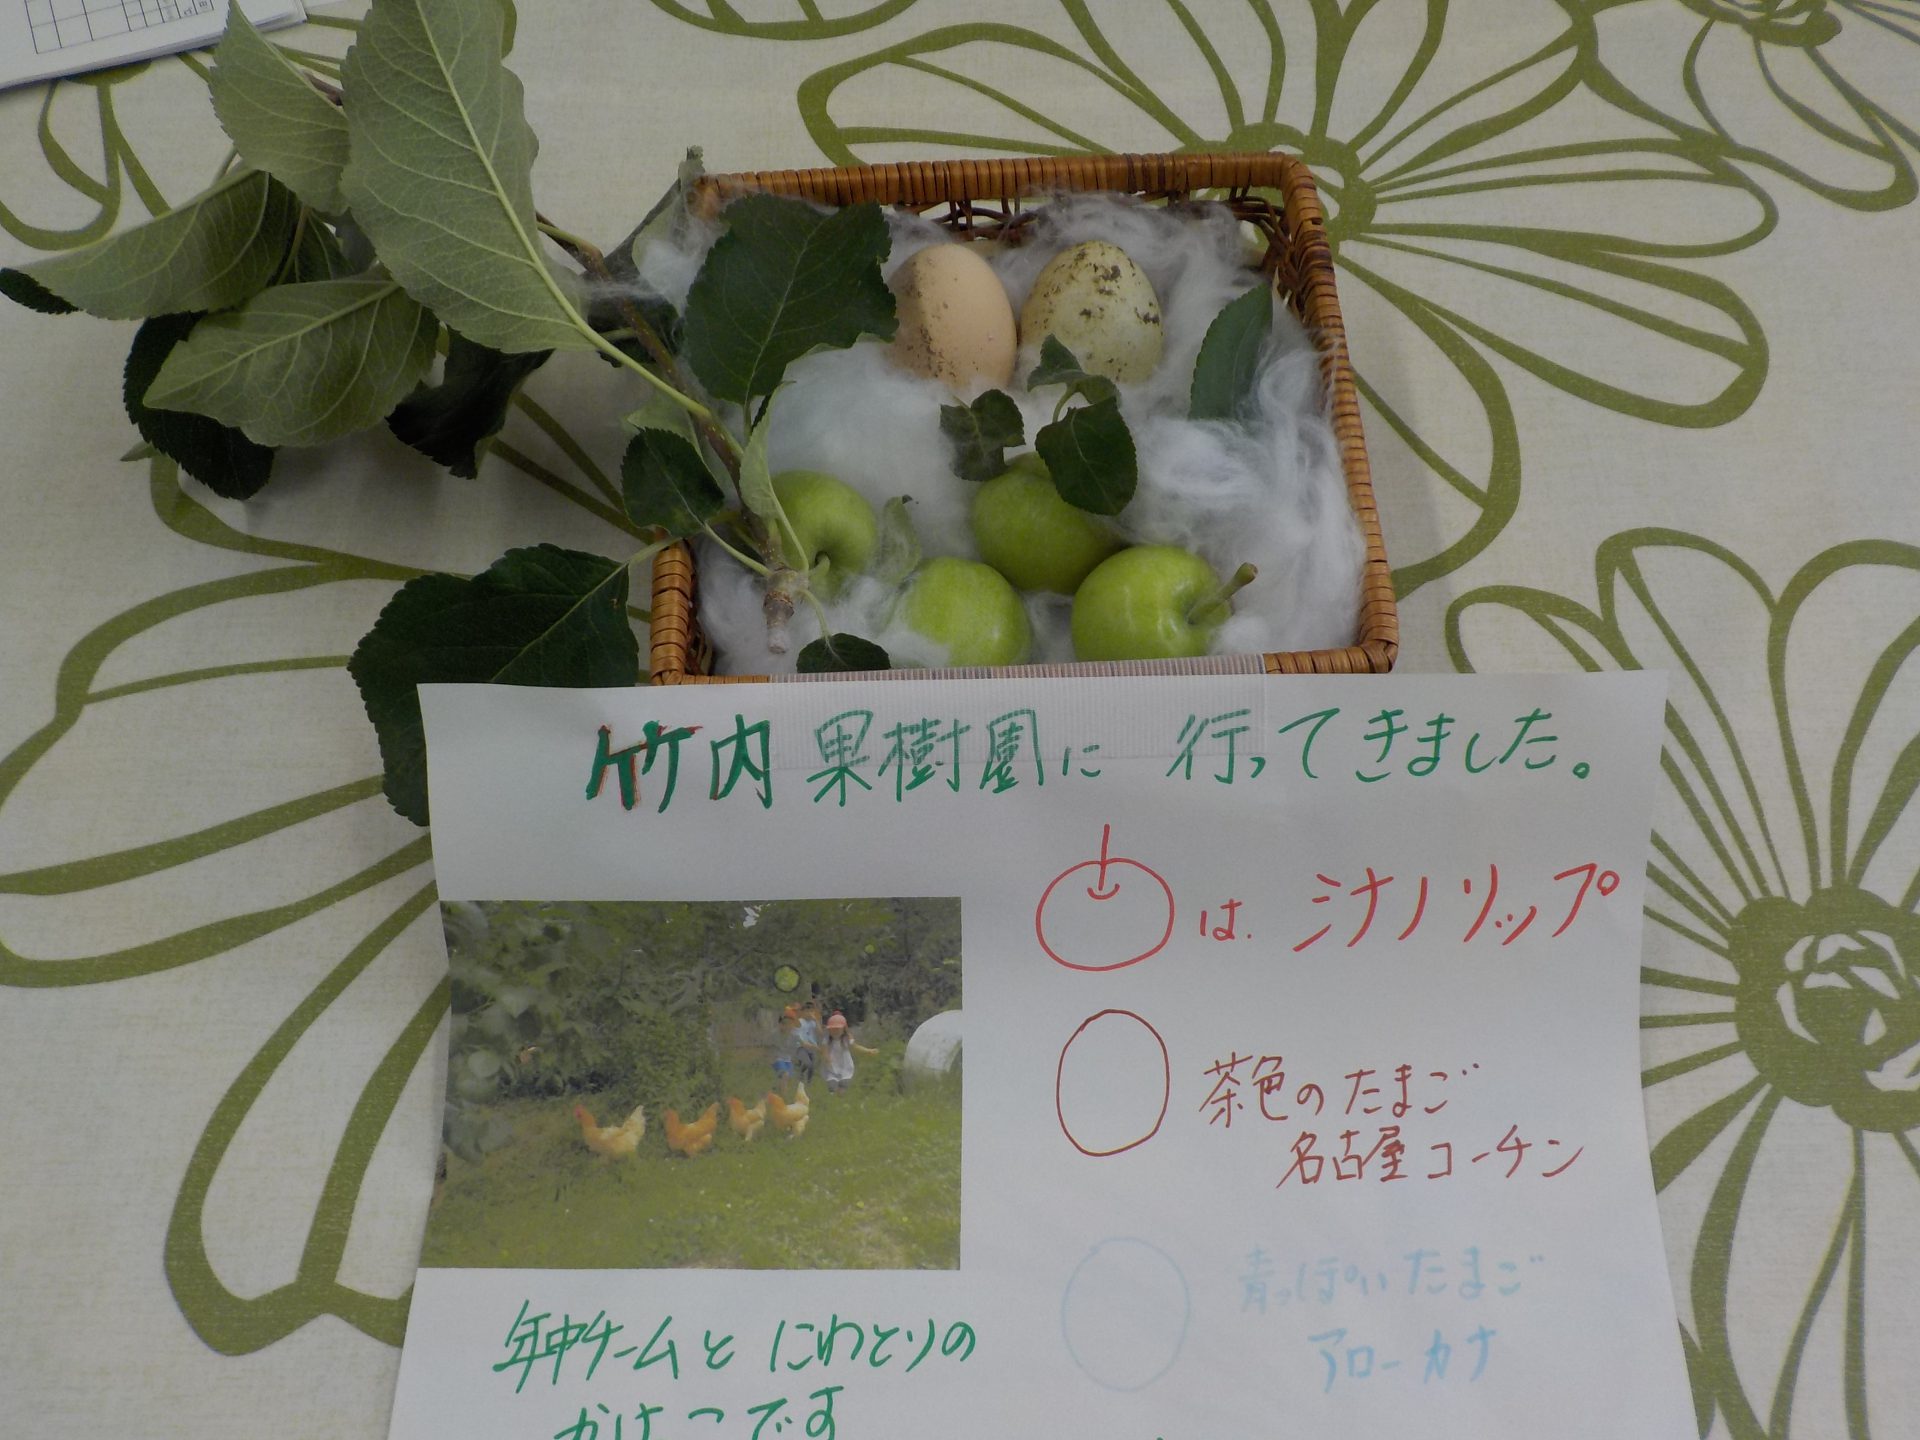 竹内果樹園に行ってきました。
は、シナノリップ
茶色のたまご
名古屋コーチン
青っぽいたまご
アローカナ
年中チームとにわとりの
かけっこです